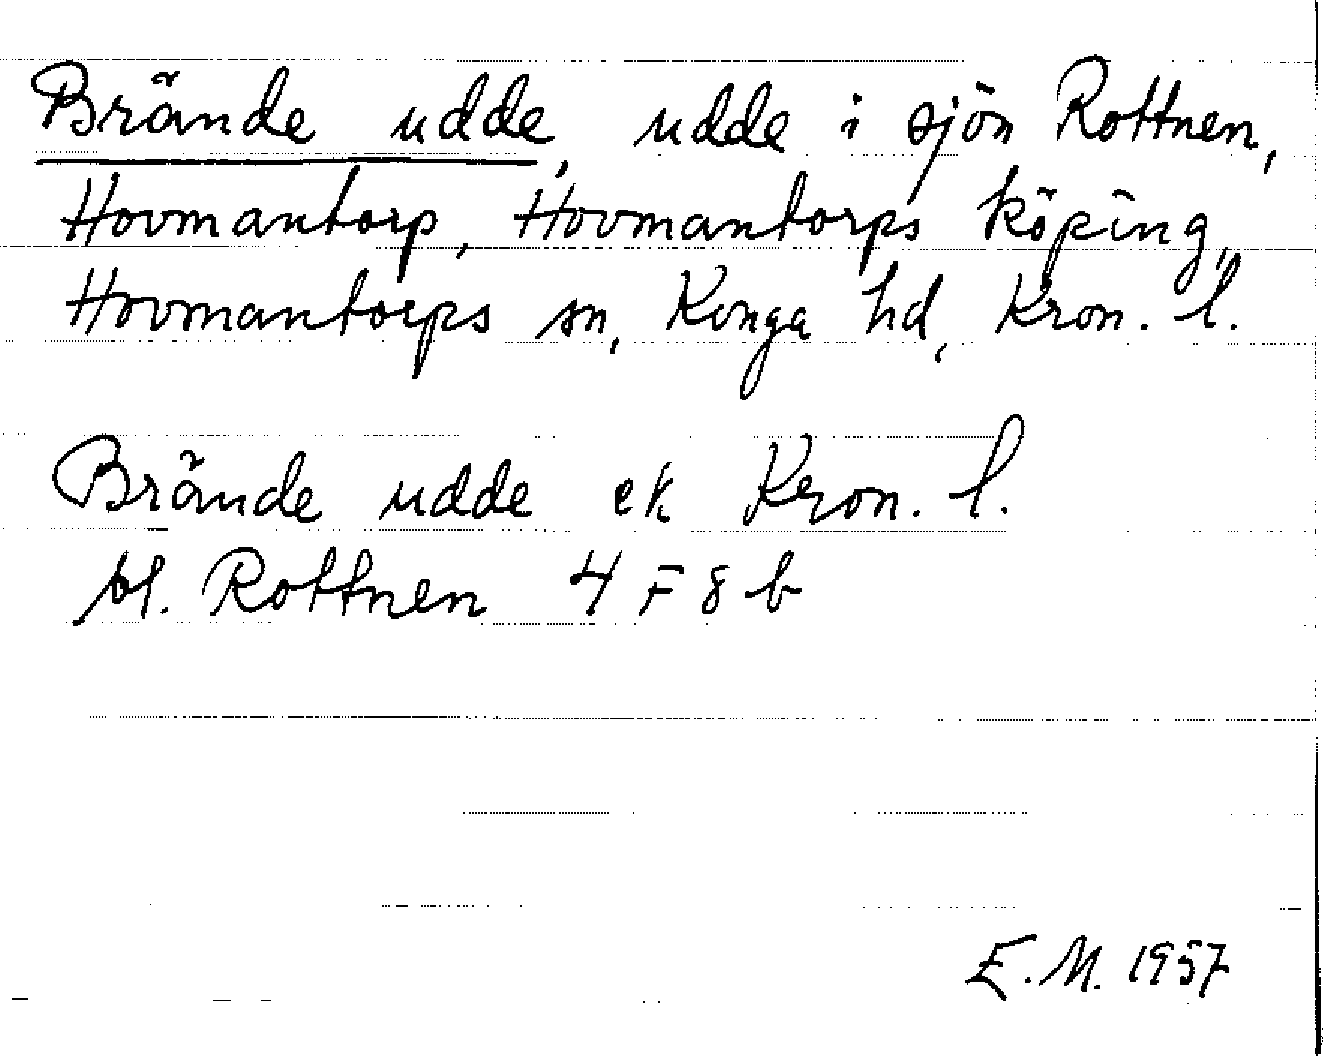 Brände udde, udde i sjön Rottnen,
Hovmantorp, Hovmantorps köping,
Hovmantorps sn, Konga hd, Kron. l.
Brände udde ek Kron. l.
bl. Rottnen 4 F 8 b
E.M. 1957